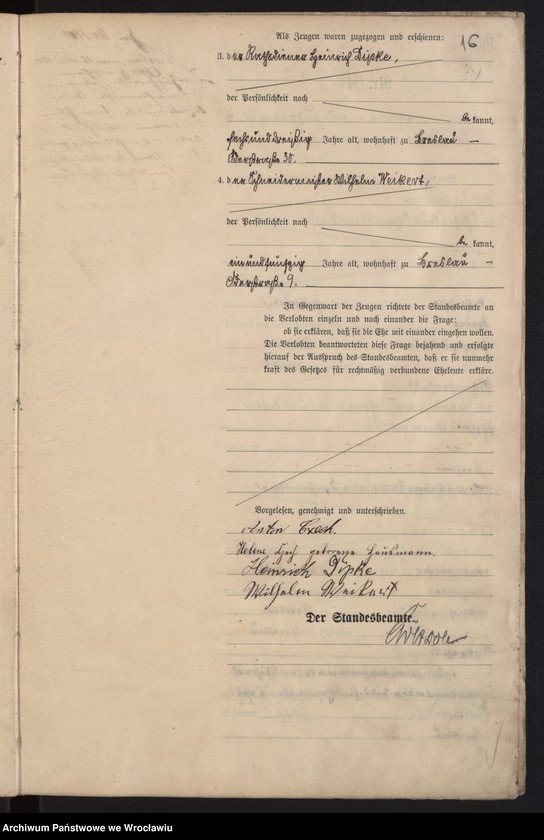 16
Als Zeugen waren zugezogen und erschienen:
3. der Rathsdiener Heinrich Dipke,
der Persönlichkeit nach
bekannt,
sechsunddreißig Jahre alt, wohnhaft zu Breslau –
Oderstraße 30.
4. der Schneidermeister Wilhelm Weikert,
der Persönlichkeit nach
bekannt,
einundfünfzig Jahre alt, wohnhaft zu Breslau –
Oderstraße 9.
In Gegenwart der Zeugen richtete der Standesbeamte an
die Verlobten einzeln und nach einander die Frage:
ob sie erklären, daß sie die Ehe mit einander eingehen wollen.
Die Verlobten beantworteten diese Frage bejahend und erfolgte
hierauf der Ausspruch des Standesbeamten, daß er sie nunmehr
kraft des Gesetzes für rechtmäßig verbundene Eheleute erkläre.
Vorgelesen, genehmigt und unterschrieben.
Anton
Helene geborene Hausmann.
Heinrich Dipke
Wilhelm Weikert
Der Standesbeamte.
Archiwum Państwowe we Wrocławiu